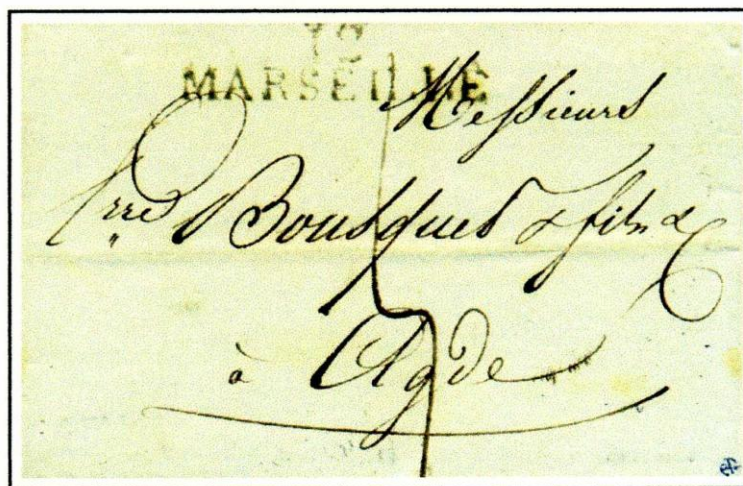 12
MARSEILLE
Messieurs
Prre Bousquet & fils &
à Agde
5